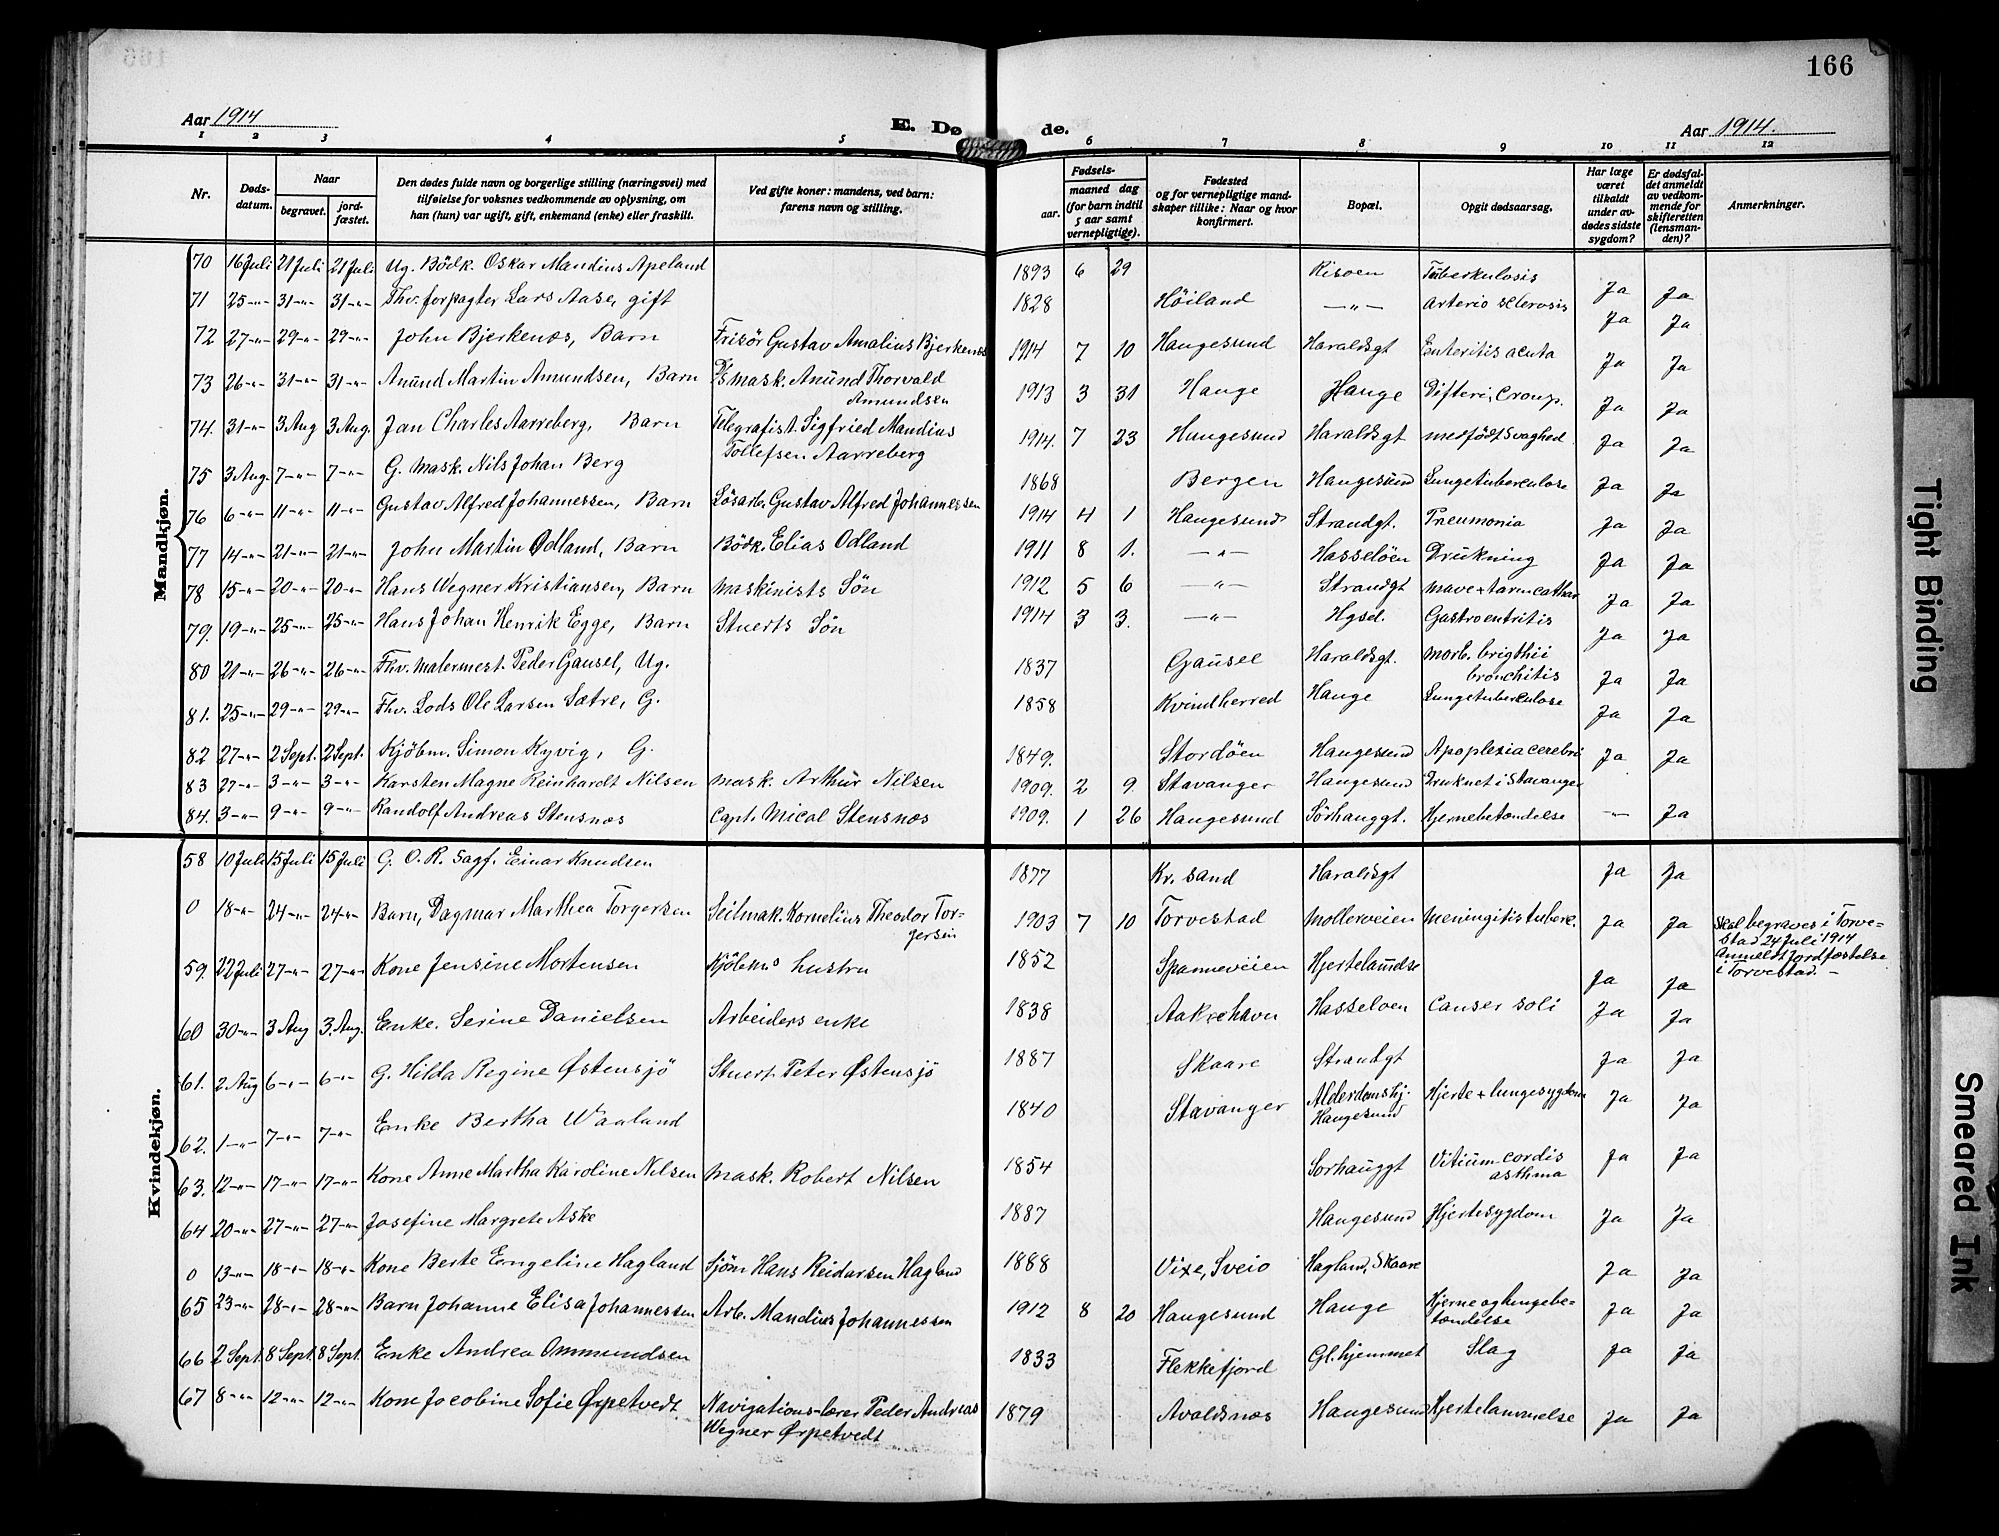 166
Aar 1914
E. Dø de.
Aar 1914.
1 2 3 4 5 6 7 8 9 10 11 12
Nr.
Døds-
datum.
Naar
begravet.
jord-
fæstet.
Den dødes fulde navn og borgerlige stilling (næringsvei) med
tilføielse for voksnes vedkommende av oplysning, om
han (hun) var ugift, gift, enkemand (enke) eller fraskilt.
Ved gifte koner: mandens, ved barn:
farens navn og stilling.
Fødsels-
aar.
maaned dag
(for barn indtil
5 aar samt
vernepligtige).
Fødested
og for vernepligtige mand-
skaper tillike: Naar og hvor
konfirmert.
Bopæl.
Opgit dødsaarsag.
Har læge
været
tilkaldt
under av-
dødes sidste
sygdom?
Er dødsfal-
det anmeldt
av vedkom-
mende for
skifteretten
(lensman-
den)?
Anmerkninger.
Mandkjøn.
70 16 Juli 21 Juli 21 Juli Ug. Bödk. Oskar Mandius Apeland 1893 6 29 Risoen Tuberkulosis Ja Ja
71 25-"- 31-"- 31-"- Fhv. forpagter Lars Aase, gift 1828 Höiland -"- Arterio sclerosis Ja Ja
72 27-"- 29-"- 29-"- John Bjerkenæs, Barn Frisör Gustav Amalius Bjerkenæs 1914 7 10 Haugesund Haraldsgt Enteritis acuta Ja Ja
73 26-"- 31-"- 31-"- Anund Martin Amundsen, Barn D/s mask. Anund Thorvald
Amundsen 1913 3 31 Hauge Hauge Difteri, Croup. Ja Ja
74. 31-"- 3 Aug 3 Aug. Jan Charles Aarreberg, Barn Telegrafist. Sigfried Mandius
Tollefsen Aarreberg 1914. 7 23 Haugesund Haraldsgt medfödt svaghed Ja Ja
75 3 Aug. 7-"- 7-"- G. mask. Nils Johan Berg 1868 Bergen Haugesund Lungetuberculose Ja Ja
76 6-"- 11-"- 11-"- Gustav Alfred Johannessen, Barn Lösarb. Gustav Alfred Johannessen 1914 4 1 Haugesund Strandgt. Pneumonia Ja Ja
77 14-"- 21-"- 21-"- John Martin Odland, Barn Bödk. Elias Odland 1911 8 1. -"- Hasselöen Drukning Ja Ja
78 15-"- 20-"- 20-"- Hans Wegner Kristiansen, Barn Maskinists Sön 1912 5 6 -"- Strandgt mave + tarmcathar Ja Ja
79. 19-"- 25-"- 25-"- Hans Johan Henrik Egge, Barn Stuerts Sön 1914 3 3. -"- Hgsd. Gastroentritis Ja Ja
80 21-"- 26-"- 26-"- Fhv. malermest. Peder Gausel, Ug. 1837 Gausel Haraldsgt. morb. brigthii
bronchitis Ja Ja
81. 25-"- 29-"- 29-"- Fhv. Lods Ole Larsen Sætre, G. 1858 Kvindherred Hauge Lungetuberculose Ja Ja
82 27-"- 2 Sept. 2 Sept. Kjöbm. Simon Kyvig, G. 1849. Stordöen Haugesund Apoplexia cerebri Ja Ja
83 27-"- 3-"- 3-"- Karsten Magne Reinhardt Nilsen mask. Arthur Nilsen 1909. 2 9. Stavanger Haugesund Druknet i Stavanger
84. 3-"- 9-"- 9-"- Randolf Andreas Stensnæs Capt. Mical Stensnæs 1909. 1 26 Haugesund Sörhauggt. Hjernebetændelse -"- Ja
Kvindekjøn.
58 10 Juli 15 Juli 15 Juli G. O. R. Sagf. Einar Knudsen 1877 Kr. sand Haraldsgt Ja Ja
0 18-"- 24-"- 24-"- Barn, Dagmar Marthea Torgersen Seilmak. Kornelius Theodor Tor-
gersen 1903 7 10 Torvestad Mollerveien Meningitis tuberc. Ja Ja Skal begraves i Torve-
stad 24 Juli 1914
Anmeldt jordfæstelse
i Torvestad. -
59. 22 Juli 27-"- 27-"- Kone Jensine Mortensen Kjöbmds hustru 1852 Spanneveien Hjertelamdse Ja Ja
60 30-"- 3 Aug 3. Aug. Enke. Serine Danielsen Arbeiders enke 1838 Aakrehavn Hasseloen Canser soli Ja Ja
61. 2 Aug 6-"- 6-"- G. Hilda Regine Østensjö Stuert. Peter Østensjö 1887 Skaare Strandgt Ja Ja
62. 1-"- 7-"- 7-"- Enke Bertha Waaland 1840 Stavanger Alderdomshj.
Haugesund Hjerte + lungesygdom Ja Ja
63. 12-"- 17-"- 17-"- Kone Anne Martha Karoline Nilsen Mask. Robert Nilsen 1854 Sorhauggt Vitium cordis
asthma Ja Ja
64 20-"- 27-"- 27-"- Josefine Margrete Aske 1887 Haugesund Hjertesygdom Ja Ja
0 13-"- 18-"- 18-"- Kone Berte Engeline Hagland Sjöm Hans Reidarsen Hagland 1888 Vixe, Sveio Hagland, Skaare Ja Ja
65 23-"- 28-"- 28-"- Barn Johanne Elisa Johannessen Arb. Mandius Johannessen 1912 8 20 Haugesund Hauge Hjerne og lungebe-
tændelse Ja Ja
66 2 Sept. 8 Sept. 8 Sept. Enke Andrea Ommundsen 1833 Flekkefjord Gl. hjemmet Slag Ja Ja
67 8-"- 12-"- 12-"- Kone Jacobine Sofie Ørpetvedt. Navigations-lærer Peder Andreas
Wegner Ørpetvedt 1879 Avaldsnæs Haugesund Hjertelammelse Ja Ja
Tight Binding
Smeared Ink